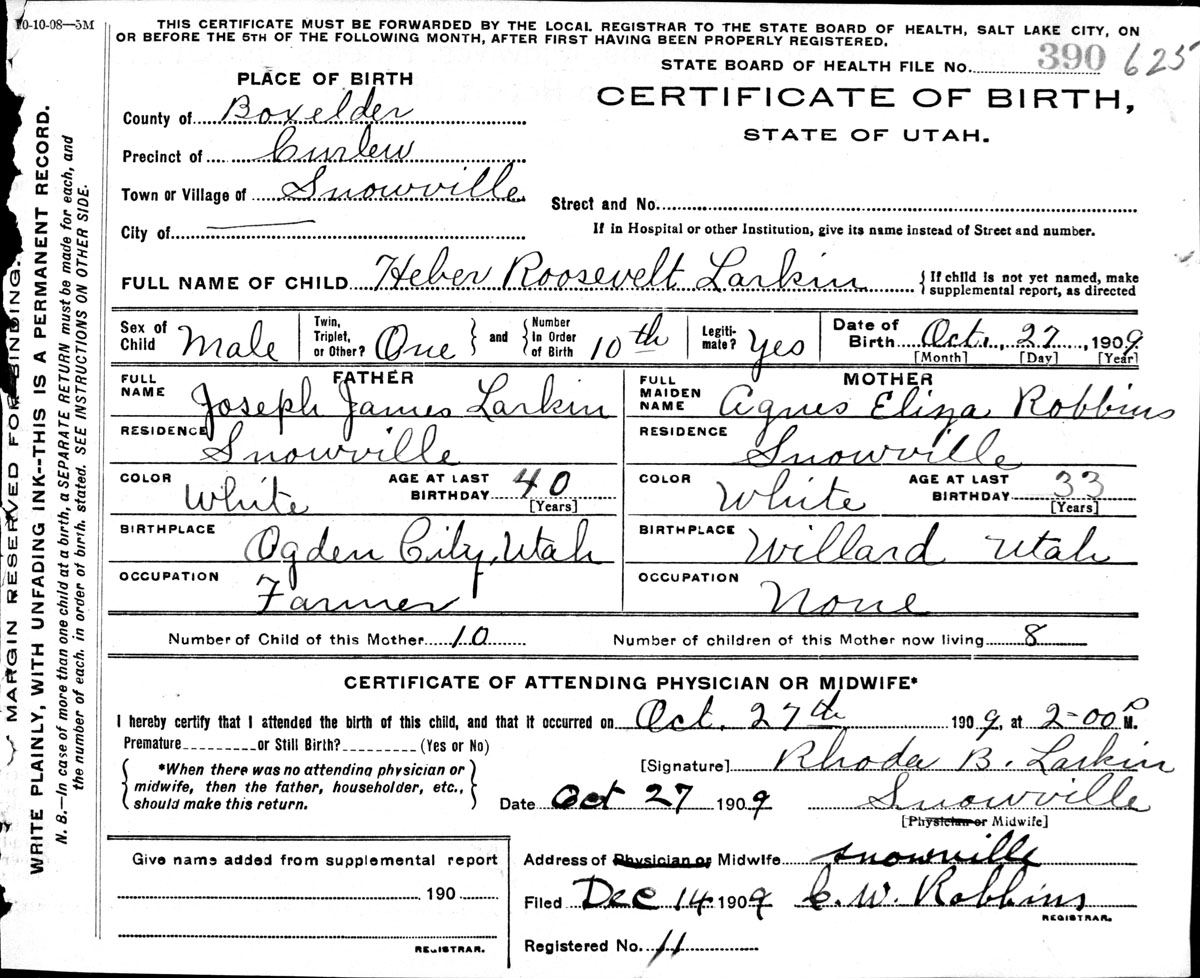 10-10-08—5M
THIS CERTIFICATE MUST BE FORWARDED BY THE LOCAL REGISTRAR TO THE STATE BOARD OF HEALTH, SALT LAKE CITY, ON
OR BEFORE THE 5TH OF THE FOLLOWING MONTH, AFTER FIRST HAVING BEEN PROPERLY REGISTERED.
STATE BOARD OF HEALTH FILE No. 390 625
PLACE OF BIRTH
CERTIFICATE OF BIRTH,
STATE OF UTAH.
County of Boxelder
Precinct of Curlew
Town or Village of Snowville
Street and No.
City of —
If in Hospital or other Institution, give its name instead of Street and number.
FULL NAME OF CHILD Heber Roosevelt Larkin { If child is not yet named, make
supplemental report, as directed
Sex of Child Male Twin, Triplet, or Other? One } and { Number In Order of Birth 10th Legiti-mate? Yes Date of Birth Oct. 27, 1909
[Month] [Day] [Year]
FATHER
FULL NAME Joseph James Larkin
RESIDENCE Snowville
COLOR White AGE AT LAST BIRTHDAY 40 [Years]
BIRTHPLACE Ogden City, Utah
OCCUPATION Farmer
MOTHER
FULL MAIDEN NAME Agnes Eliza Robbins
RESIDENCE Snowville
COLOR White AGE AT LAST BIRTHDAY 33 [Years]
BIRTHPLACE Willard Utah
OCCUPATION None
Number of Child of this Mother 10 Number of children of this Mother now living 8
CERTIFICATE OF ATTENDING PHYSICIAN OR MIDWIFE*
I hereby certify that I attended the birth of this child, and that it occurred on Oct. 27th 1909, at 2-00 P M.
Premature or Still Birth? (Yes or No)
{ *When there was no attending physician or
midwife, then the father, householder, etc.,
should make this return. }
[Signature] Rhoda B. Larkin
Date Oct 27 1909 Snowville
[Physician or Midwife]
Give name added from supplemental report
190
REGISTRAR.
Address of Physician or Midwife Snowville
Filed Dec 14 1909 C. W. Robbins
REGISTRAR.
Registered No. 11
MARGIN RESERVED FOR BINDING.
WRITE PLAINLY, WITH UNFADING INK--THIS IS A PERMANENT RECORD.
N. B.—In case of more than one child at a birth, a SEPARATE RETURN must be made for each, and
the number of each, in order of birth, stated. SEE INSTRUCTIONS ON OTHER SIDE.